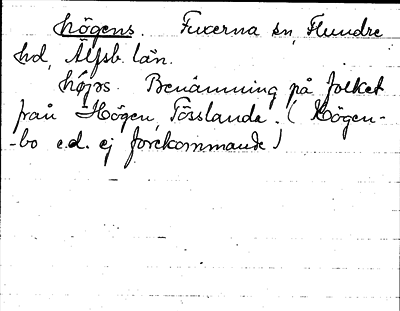 högens. Fuxerna sn, Flundre
hd, Älfsb. län.
højəs. Benämning på folket
från Högen, Tösslanda. (Högen-
-bo e.d. ej förekommande)